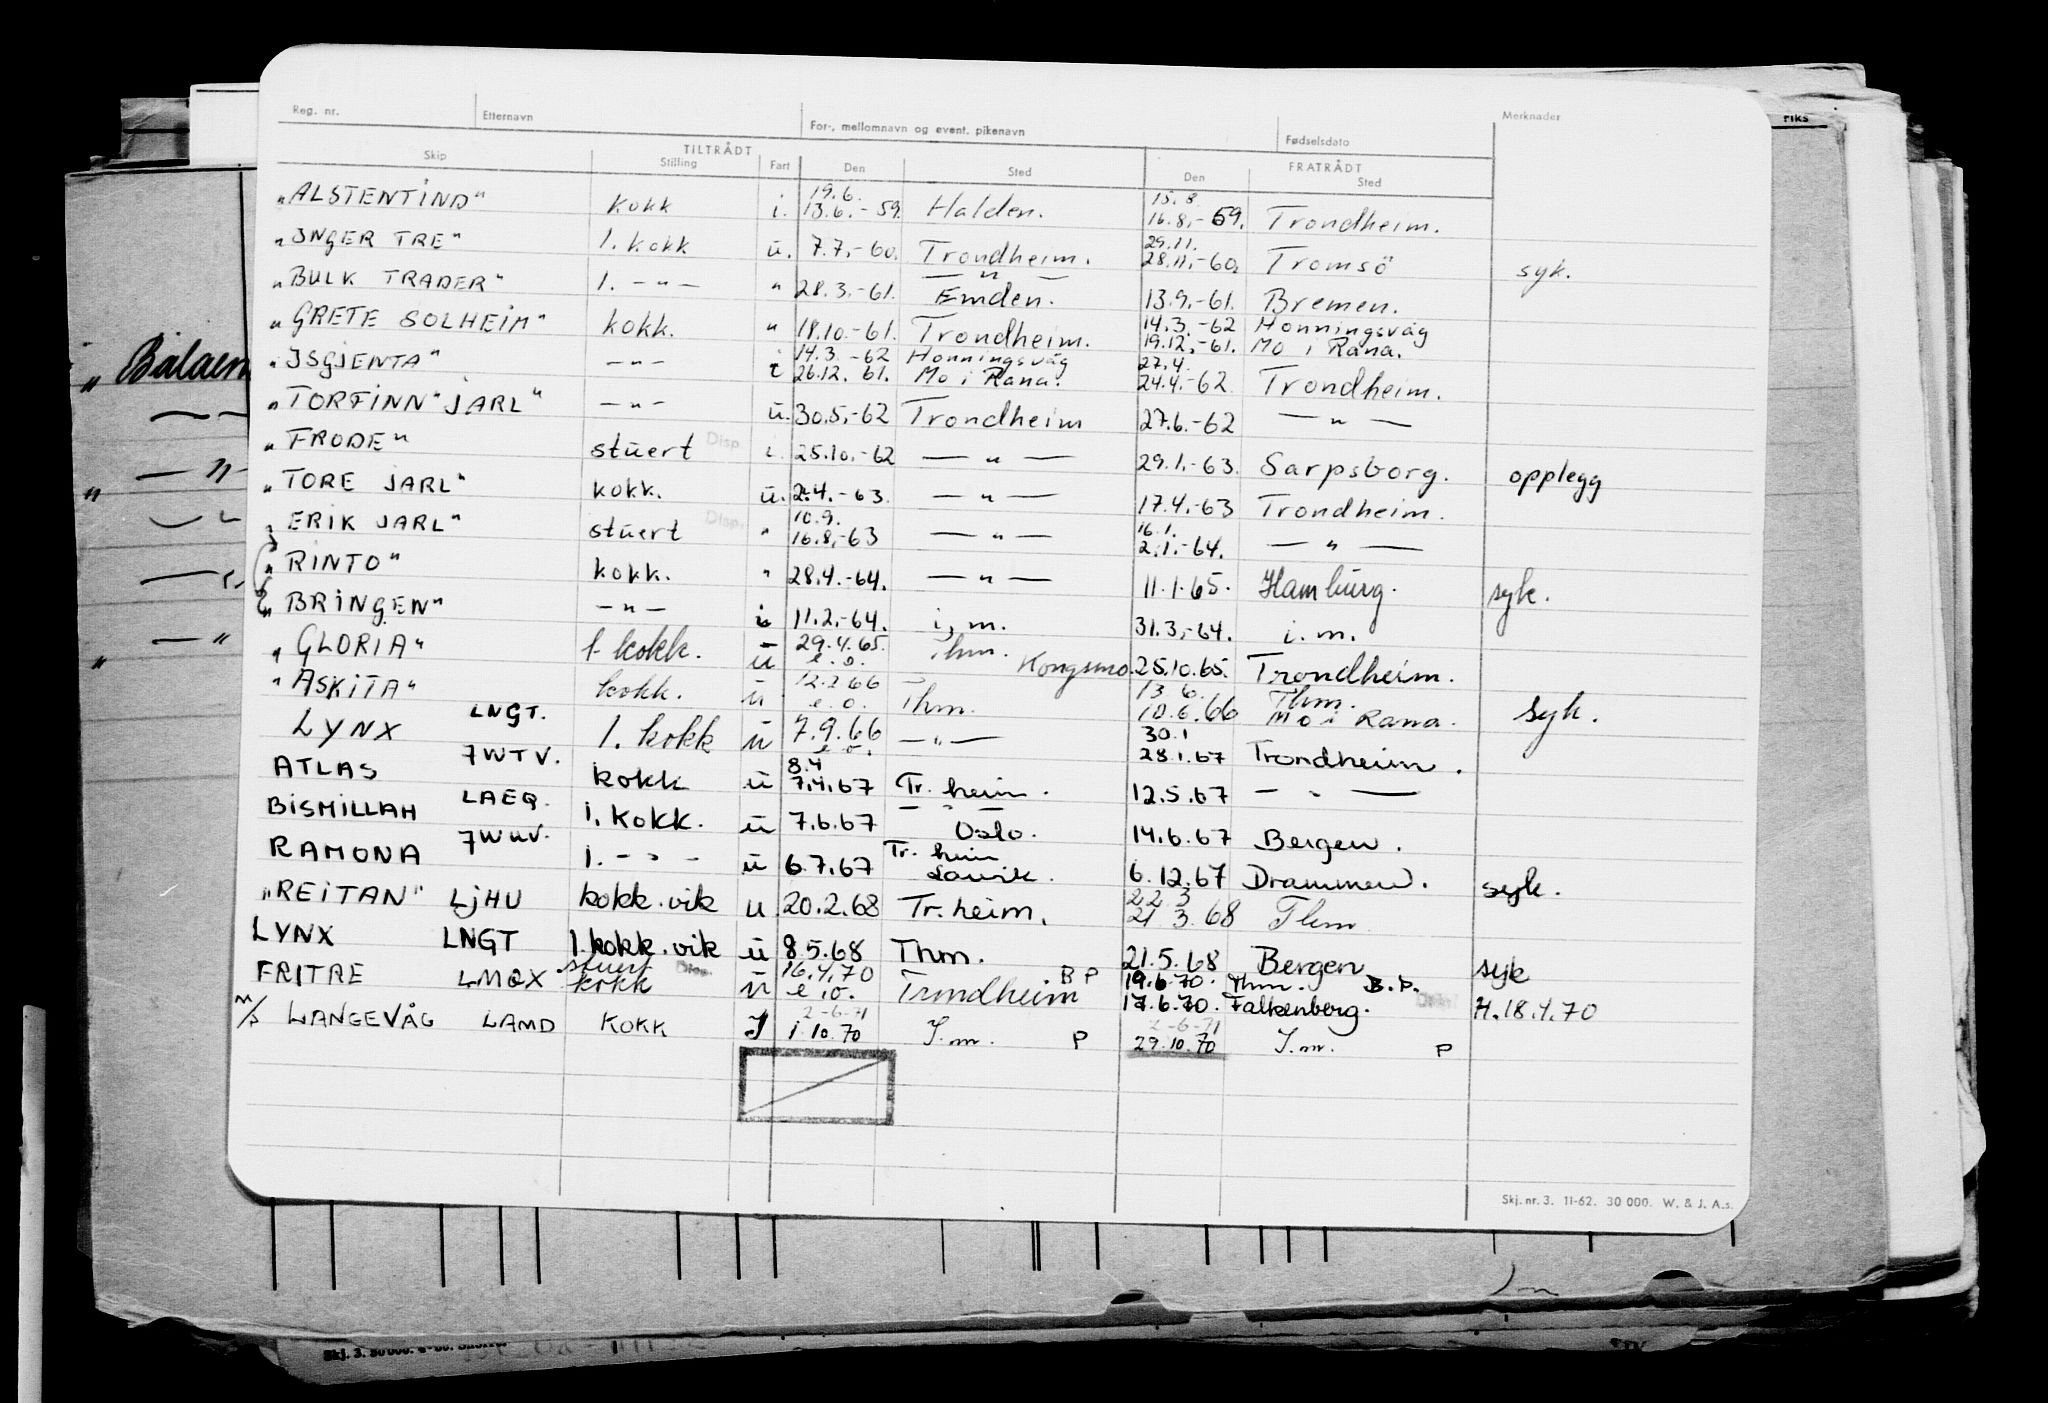 Reg. nr. Etternavn For-, mellomnavn og event. pikenavn Fødselsdato Merknader
TILTRÅDT FRATRÅDT
Skip Stilling Fart Den Sted Den Sted
19.6. 15.8
"ALSTENTIND" kokk i. 13.6.-59. Halden. 16.8.-59. Trondheim.
29.11.
"INGER TRE" 1. kokk u. 7.7.-60. Trondheim. 28.11.-60. Tromsö syk.
— " —
"BULK TRADER" 1. - " - " 28.3.-61. Emden. 13.9.-61. Bremen.
14.3.-62 Honningsvåg
"GRETE SOLHEIM" kokk. " 18.10.-61. Trondheim. 19.12.-61. Mo i Rana.
14.3.-62 Honningsvåg 27.4.
"ISGJENTA" - " - i 26.12.61. Mo i Rana. 24.4.-62. Trondheim.
"TORFINN" JARL" - " - u. 30.5.-62 Trondheim 27.6.-62 — " —
"FRODE" stuert Disp. i. 25.10.-62 — " — 29.1.-63. Sarpsborg. opplegg
"TORE JARL" kokk. u. 2.4.-63. — " — 17.4.-63 Trondheim.
10.9. 16.1.
"ERIK JARL" stuert Disp. " 16.8.-63 — " — 2.1.-64. — " —
"RINTO" kokk. " 28.4.-64. — " — 11.1.65. Hamburg. syk.
"BRINGEN" - " - i 11.2.-64. i.m. 31.3.-64. i.m.
"GLORIA" 1 kokk. u 29.4.65. Thm. Kongsmo. 25.10.65. Trondheim.
e.o.
12.2.66 13.6. Thm.
"ASKITA" kokk. u e.o. Thm. 10.6.66 Mo i Rana. Syk.
30.1
LYNX LNGT. 1. kokk u 7.9.66 — " — 28.1.67 Trondheim.
e.o.
8.4
ATLAS JWTV. kokk u 7.4.67 Tr. heim. 12.5.67 — " —
— " —
BISMILLAH LAEQ. 1. kokk. u 7.6.67 Oslo. 14.6.67 Bergen.
Tr. heim
RAMONA JWUV. 1. - " - u 6.7.67 Larvik. 6.12.67 Drammen. syk.
22 3
"REITAN" LJHU kokk.vik u 20.2.68 Tr.heim. 21 3.68 Thm
LYNX LNGT 1.kokk.vik u 8.5.68 Thm. 21.5.68 Bergen syk
stuert Disp. 16.4.70 B P 19.6.70. Thm. B.P.
FRITRE LMQX kokk u e.o. Trondheim 17.6.70. Falkenberg. H.18.4.70
2-6-71 2-6-71
M/S LANGEVÅG LAMD KOKK J 1.10.70 J.m. P 29.10.70 J.m. P
Skj. nr. 3. 11-62. 30 000. W. & J. A.s.
" Balaen
— " —
"
— " —
"
riks